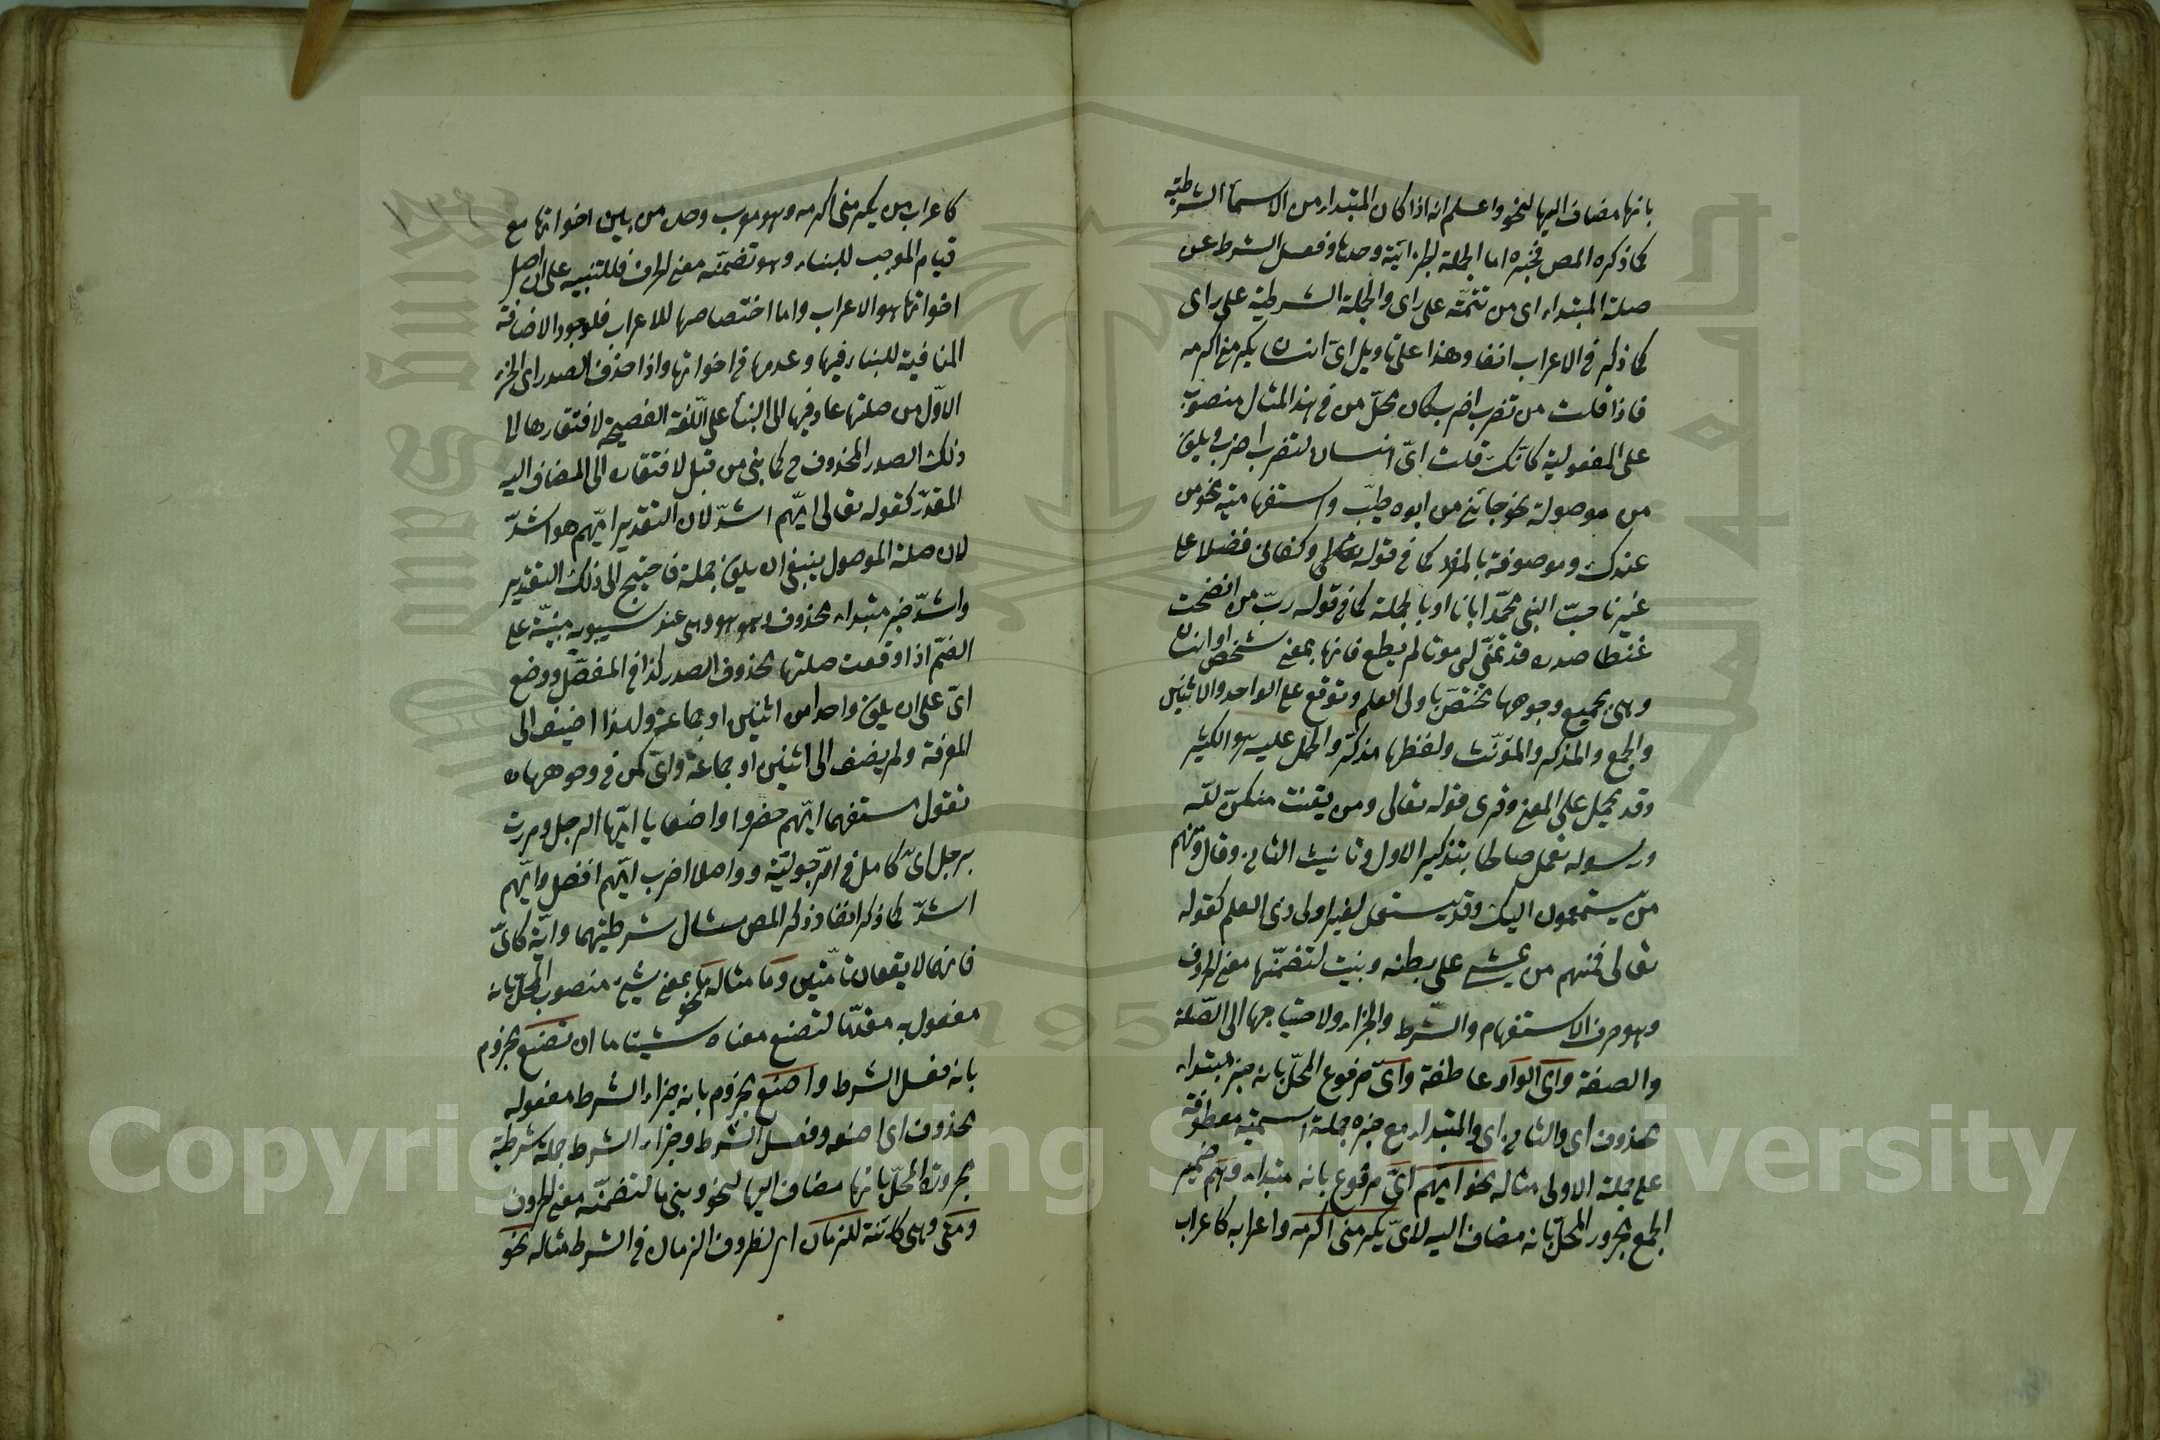 بانها مضاف اليها لنحو واعلم انه اذا كان المبتداء من الاسماء الشرطية
كما ذكره المص فخبره اما الجملة الجزائية وحدها وفعل الشرط عن
صلة المبتداء اى من تتمته على راى والجملة الشرطية على راى
كما ذكر فى الاعراب انفا وهذا على تاويل اىّ انسان يكرمنى اكرمه
فاذا قلت من تضرب اضرب كان محلّ من فى هذا المثال منصوب
على المفعولية كانّك قلت اىّ انسان تضرب اضرب ويلى
من موصولة نحو جائنى من ابوه طيّب واستفهامية نحو من
عندك وموصوفة بالمفرد كما فى قوله وكفانى فضلا على
غيرنا حبّ النبى محمّد ايانا او بالجملة كما فى قوله ربّ من انضجت
غيظا صدره قد تمنّى لى موتا لم يطع فانها بمعنى شخص او انسان
وهى بجميع وجوهها تختصّ باولى العلم وتوقع على الواحد والاثنين
والجمع والمذكر والمؤنّث ولفظها مذكّر والحمل عليه هو الكثير
وقد يحمل على المعنى وقرى قوله تعالى ومن يقنت منكنّ للّه
ورسوله تعمل صالحا بتذكير الاول وتانيث الثانى وقال ومنهم
من يستمعون اليك وقد يستعمل لغير اولى ذى العلم كقوله
تعالى فمنهم من يمشى على بطنه وبنيت لتضمّنها معنى الحروف
وهو حرف الاستفهام والشّرط والجزاء ولاحتياجها الى الصّلة
والصفة واىّ الواو عاطفة واىّ مرفوع المحلّ بانه خبر مبتداء
محذوف اى والثانى اى والمبتداء مع خبره جملة اسمية معطوفة
على جملة الاولى مثاله نحو ايّهم اىّ مرفوع بانه مبتداء وهم ضمير
الجمع مجرور المحلّ بانه مضاف اليه لاىّ يكرمنى اكرمه واعرابه كاعراب
كاعراب من يكرمنى اكرمه وهو معرب وحده من بين اخواتها مع
قيام الموجب للبناء وهو تضمّنه معنى الحرف فللتنبيه على ان اصل
اخواتها هو الاعراب واما اختصاصها للاعراب فلوجود الاضافة
المنافية للبناء فيها وعدمها فى اخواتها واذا حذف الصدر اى الجزء
الاوّل من صلتها عاد فيها الى البناء على اللّغة الفصيحة لافتقارها الى
ذلك الصدر المحذوف ح كما بنى من قبل لافتقاره الى المضاف اليه
المقدّر كقوله تعالى ايّهم اشدّ لان التقدير ايّهم هو اشدّ
لان صلة الموصول ينبغى ان يكون جملة فاحتيج الى ذلك التقدير
واشدّ خبر مبتداء محذوف وهو هو وهى عند سيبويه مبنيّة على
الضمّ اذا وقعت صلتها محذوف الصدر كذا فى المفصّل ووضع
اىّ على ان يكون واحدا من اثنين او جماعة ولهذا اضيف الى
المعرفة ولم يضف الى اثنين او جماعة واىّ كمن فى وجوهها
تقول مستفهما ايّهم حضروا واضعا يا ايّها الرجل ومررت
برجل اىّ كامل فى الرّجوليّة وواصلا اضرب ايّهم افضل وايّهم
اشدّ كما ذكر انفا وذكر المص مثال شرطيتهما وايّة كاىّ
فانهما لا يقعان تامّتين وما مثاله نحو ما بمعنى شيئ منصوب المحلّ بانه
مفعول به مقدّما لتصنع معناه شيئا ما ان تصنع مجزوم
بانه فعل الشرط واصنع مجزوم بانه جزاء الشرط مفعوله
محذوف اى اصنعه وفعل الشرط وجزاء الشرط جملة شرطيّة
مجرورة المحلّ بانها مضاف اليها لنحو وبنى ما لتضمنّه معنى الحروف
ومتى وهى كائنة للزمان اى لظروف الزمان فى الشرط مثاله نحو
Copyright © King Saud University
1957